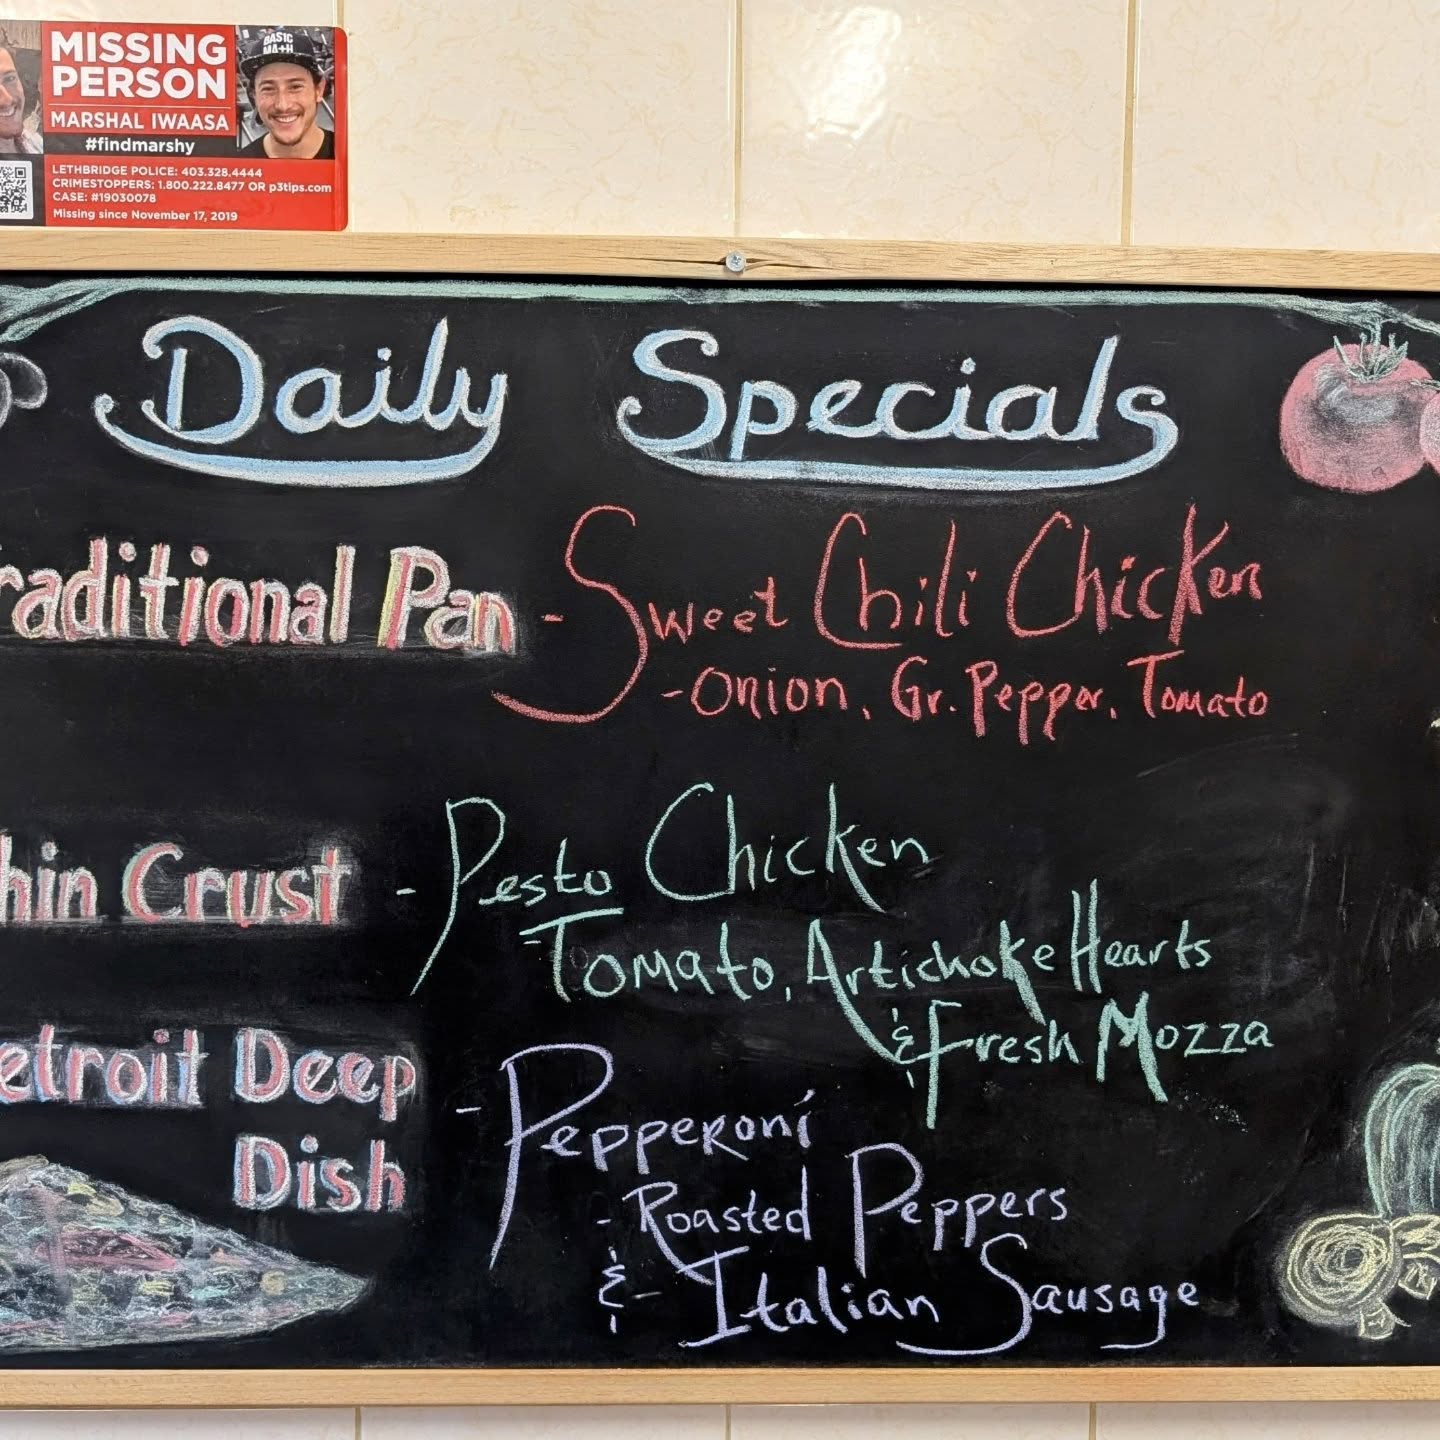 MISSING
PERSON
MARSHAL IWAASA
#findmarshy
LETHBRIDGE POLICE: 403.328.4444
CRIMESTOPPERS: 1.800.222.8477 OR p3tips.com
CASE: #19030078
Missing since November 17, 2019
BASIC
MA+H
Daily Specials
raditional Pan - Sweet Chili Chicken
- Onion, Gr. Pepper, Tomato
hin Crust - Pesto Chicken
- Tomato, Artichoke Hearts
& Fresh Mozza
etroit Deep
Dish - Pepperoni
- Roasted Peppers
& - Italian Sausage